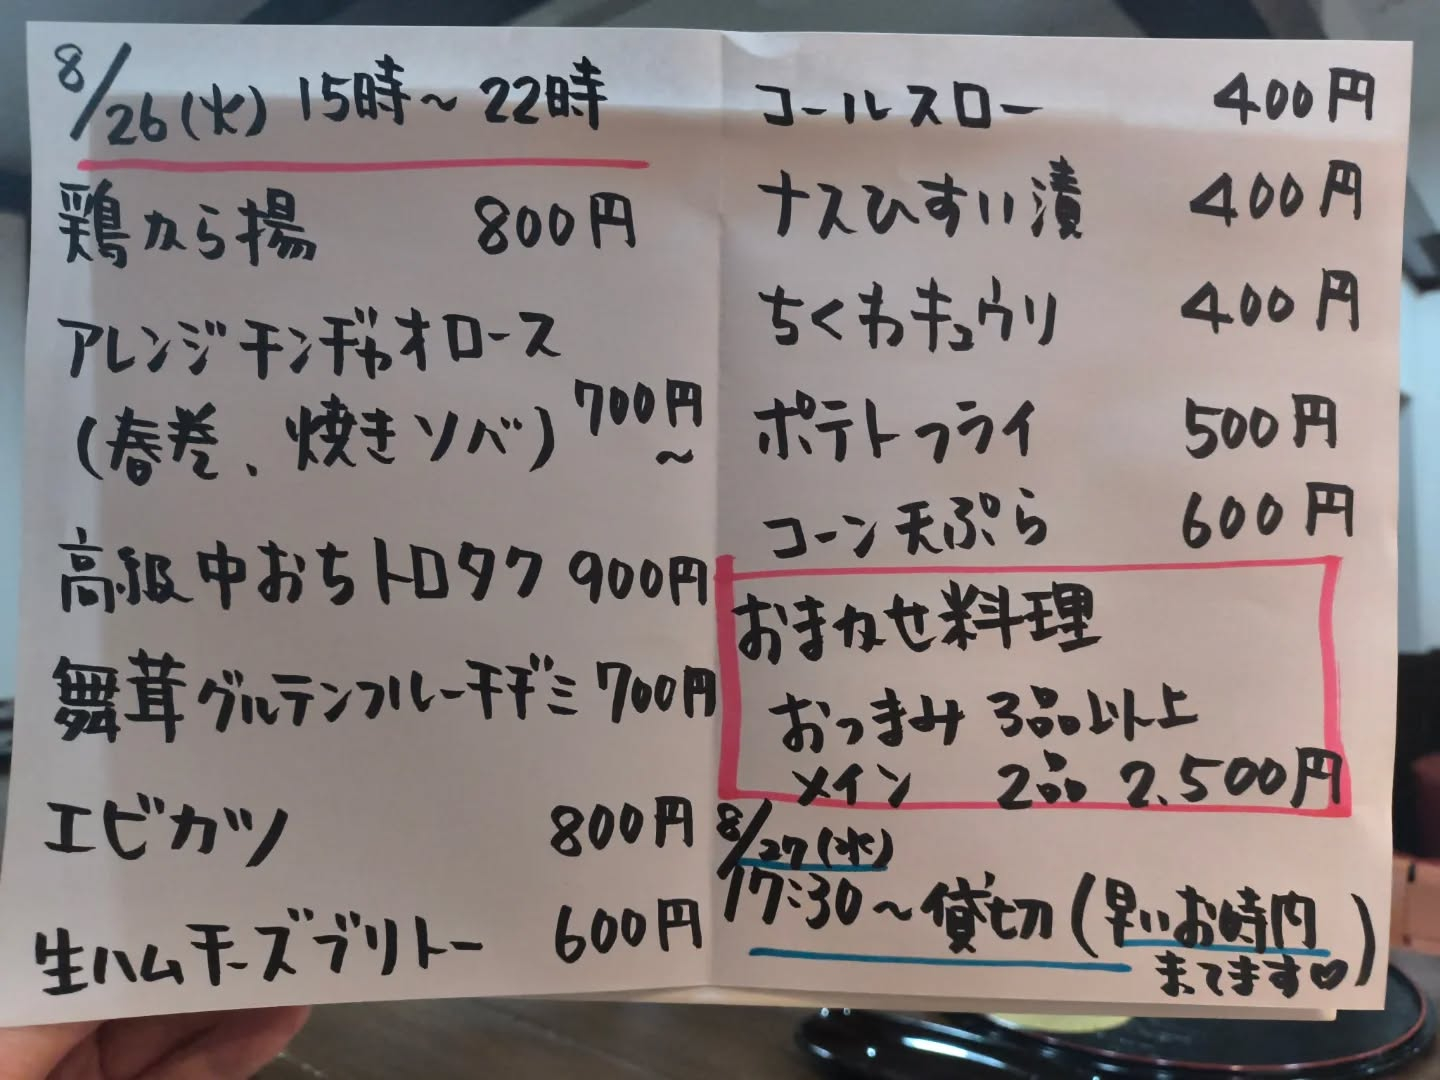 8/26(火) 15時～22時
鶏から揚 800円
アレンジチンヂャオロース
(春巻、焼きソバ) 700円～
高級中おちトロタク 900円
舞茸グルテンフルーチヂミ 700円
エビカツ 800円
生ハムチーズブリトー 600円
コールスロー 400円
ナスひすい漬 400円
ちくわキュウリ 400円
ポテトフライ 500円
コーン天ぷら 600円
おまかせ料理
おつまみ 3品以上
メイン 2品 2,500円
8/27(水)
17:30～貸切(早いお時間
まってます♡)